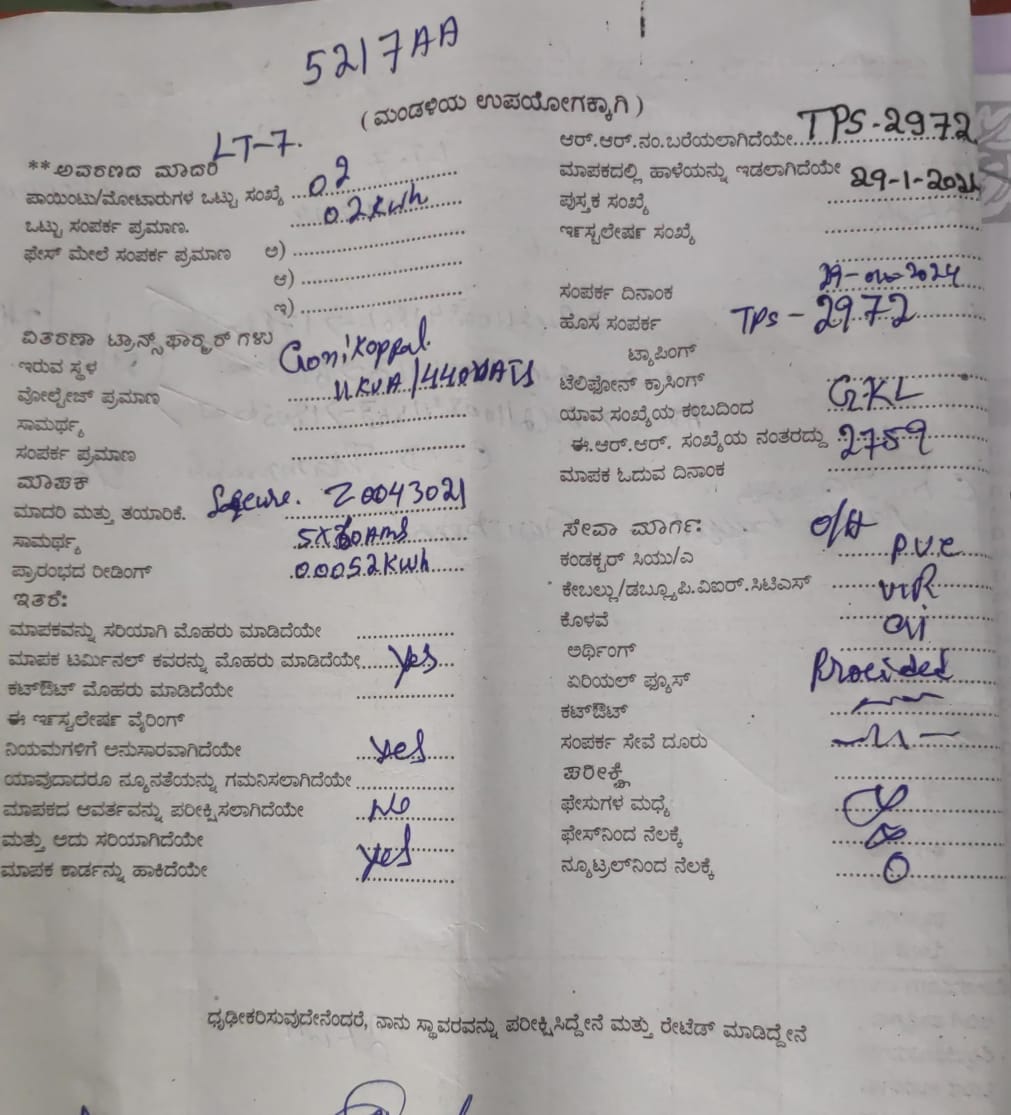 5217AA
(ಮಂಡಳಿಯ ಉಪಯೋಗಕ್ಕಾಗಿ)
**ಅವರಣದ ಮಾದರಿ LT-7.
ಪಾಯಿಂಟು/ಮೋಟಾರುಗಳ ಒಟ್ಟು ಸಂಖ್ಯೆ 02
ಒಟ್ಟು ಸಂಪರ್ಕ ಪ್ರಮಾಣ. 0.2 KWh
ಫೇಸ್ ಮೇಲೆ ಸಂಪರ್ಕ ಪ್ರಮಾಣ ಅ)
ಆ)
ಇ)
ವಿತರಣಾ ಟ್ರಾನ್ಸ್‌ಫಾರ್ಮರ್‌ಗಳು
ಇರುವ ಸ್ಥಳ Gonikoppal.
ವೋಲ್ಟೇಜ್ ಪ್ರಮಾಣ 11KVA/440
ಸಾಮರ್ಥ್ಯ
ಸಂಪರ್ಕ ಪ್ರಮಾಣ
ಮಾಪಕ
ಮಾದರಿ ಮತ್ತು ತಯಾರಿಕೆ. Z0043021
ಸಾಮರ್ಥ್ಯ
ಪ್ರಾರಂಭದ ರೀಡಿಂಗ್ 0.0052 KWh
ಇತರೆ:
ಮಾಪಕವನ್ನು ಸರಿಯಾಗಿ ಮೊಹರು ಮಾಡಿದೆಯೇ
ಮಾಪಕ ಟರ್ಮಿನಲ್ ಕವರನ್ನು ಮೊಹರು ಮಾಡಿದೆಯೇ yes
ಕಟ್‌ಔಟ್ ಮೊಹರು ಮಾಡಿದೆಯೇ
ಈ ಇನ್‌ಸ್ಟಲೇಷನ್ ವೈರಿಂಗ್
ನಿಯಮಗಳಿಗೆ ಅನುಸಾರವಾಗಿದೆಯೇ yes
ಯಾವುದಾದರೂ ನ್ಯೂನತೆಯನ್ನು ಗಮನಿಸಲಾಗಿದೆಯೇ
ಮಾಪಕದ ಆವರ್ತವನ್ನು ಪರೀಕ್ಷಿಸಲಾಗಿದೆಯೇ No
ಮತ್ತು ಅದು ಸರಿಯಾಗಿದೆಯೇ
ಮಾಪಕ ಕಾರ್ಡನ್ನು ಹಾಕಿದೆಯೇ yes
ಆರ್.ಆರ್.ನಂ.ಬರೆಯಲಾಗಿದೆಯೇ TPS-2972
ಮಾಪಕದಲ್ಲಿ ಹಾಳೆಯನ್ನು ಇಡಲಾಗಿದೆಯೇ 29-1-2024
ಪುಸ್ತಕ ಸಂಖ್ಯೆ
ಇನ್‌ಸ್ಟಲೇಷನ್ ಸಂಖ್ಯೆ
ಸಂಪರ್ಕ ದಿನಾಂಕ
ಹೊಸ ಸಂಪರ್ಕ TPS-2972
ಟ್ಯಾಪಿಂಗ್
ಟೆಲಿಫೋನ್ ಕ್ರಾಸಿಂಗ್
ಯಾವ ಸಂಖ್ಯೆಯ ಕಂಬದಿಂದ GKL
ಈ.ಆರ್.ಆರ್. ಸಂಖ್ಯೆಯ ನಂತರದ್ದು 2759
ಮಾಪಕ ಓದುವ ದಿನಾಂಕ
ಸೇವಾ ಮಾರ್ಗ: O/H
ಕಂಡಕ್ಟರ್ ಸಿಯು/ಎ P.V.C
ಕೇಬಲ್ಲು/ಡಬ್ಲ್ಯೂಪಿ.ವಿಐಆರ್.ಸಿಟಿಎಸ್ VIR
ಕೊಳವೆ
ಅರ್ಥಿಂಗ್
ಏರಿಯಲ್ ಫ್ಯೂಸ್ Provided
ಕಟ್‌ಔಟ್
ಸಂಪರ್ಕ ಸೇವೆ ದೂರು
ಪರೀಕ್ಷೆ
ಫೇಸುಗಳ ಮಧ್ಯೆ
ಫೇಸ್‌ನಿಂದ ನೆಲಕ್ಕೆ
ನ್ಯೂಟ್ರಲ್‌ನಿಂದ ನೆಲಕ್ಕೆ 0
ಧೃಢೀಕರಿಸುವುದೇನೆಂದರೆ, ನಾನು ಸ್ಥಾವರವನ್ನು ಪರೀಕ್ಷಿಸಿದ್ದೇನೆ ಮತ್ತು ರೇಟೆಡ್ ಮಾಡಿದ್ದೇನೆ